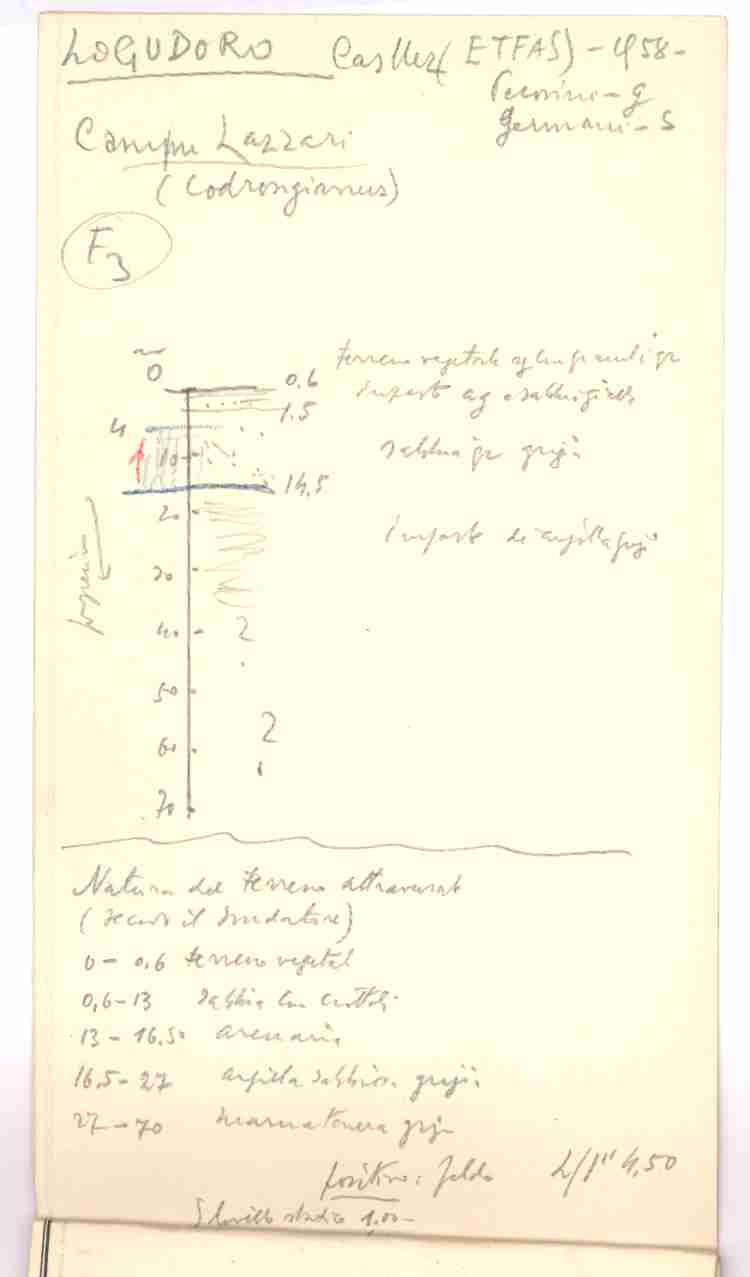 LOGUDORO (ETFAS) - 1958 -
Pecorini - G
Germani - S
Campu Lazzari
(Codrongianus)
F3
m
0
0.6 terreno vegetale
1.5
4
10 sabbia gr grigia
14,5
20
argilla grigi
30
40 ?
50
60 ?
70
Natura del terreno attraversat
(secondo il sondatore)
0 - 0,6 terreno vegetal
0,6 - 13 sabbia con ciottoli
13 - 16.50 arenaria
16,5 - 27 argilla sabbiosa grigia
27 - 70 marna tenera grigi
positivo: falda L/1" 4,50
livello statico 1,00 -